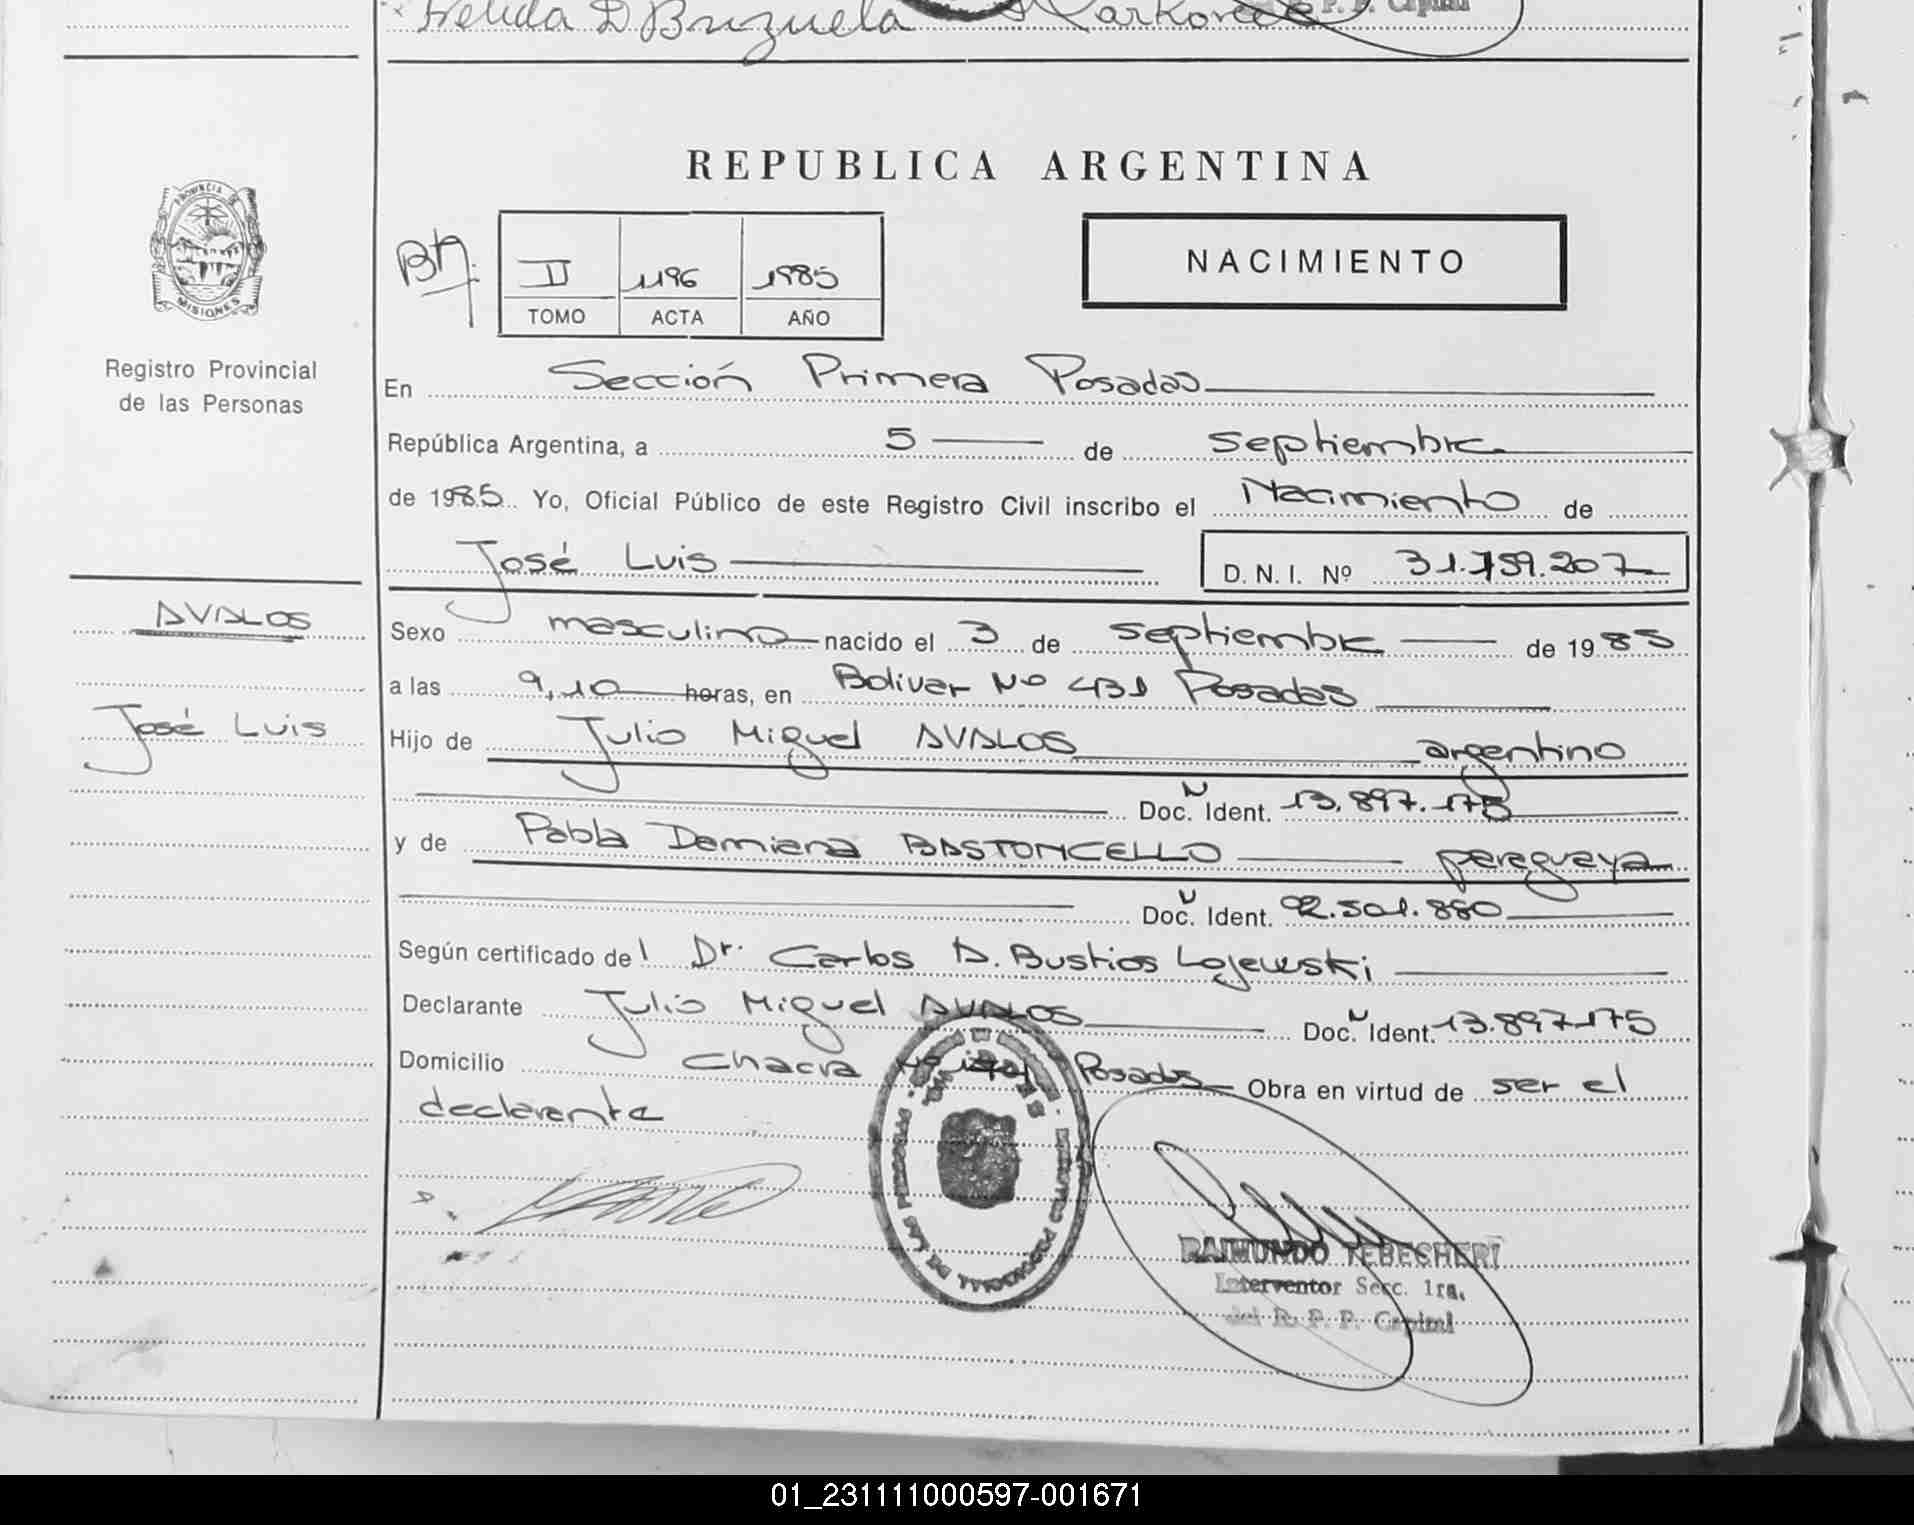 Brizuela
P. P. Capital
REPUBLICA ARGENTINA
PROVINCIA DE
MISIONES
II 1196 1985
TOMO ACTA AÑO
NACIMIENTO
Registro Provincial
de las Personas
En Sección Primera Posadas
República Argentina, a 5 de septiembre
de 1985 Yo, Oficial Público de este Registro Civil inscribo el Nacimiento de
José Luis D. N. I. Nº 31.759.207
AVALOS
José Luis
Sexo masculino nacido el 3 de septiembre de 1985
a las 9,10 horas, en Bolivar Nº 431 Posadas
Hijo de Julio Miguel AVALOS argentino
Doc. Ident. 13.897.175
y de Pabla Damiana BASTONCELLO paraguaya
Doc. Ident. 92.501.880
Según certificado del Dr. Carlos A. Bustios Lojewski
Declarante Julio Miguel AVALOS Doc. Ident. 13.897.175
Domicilio Chacra Posadas Obra en virtud de ser el
declarante
RAIMUNDO TEBESHERI
Interventor Secc. 1ra.
del R. P. P. Capital
01_231111000597-001671